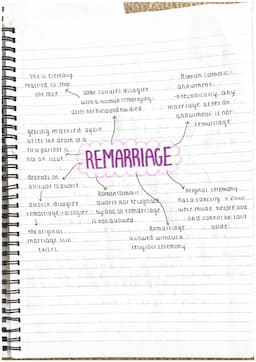 she is eternally
married to that
one man.
some families disagree
with a woman remarrying
after her husband has died
Roman Catholic:
annulment
→ technically, any
marriage after an
annulment is not
remarriage.
getting married again
after the death of a
first partner is
not an issue
REMARRIAGE
depends on
attitude to divorce
divorce: disagree
remarriage: disagree
the original
marriage still
exists
Roman Catholic:
divorce not recognised
by God so remarriage
is not allowed.
Remarriage
allowed without a
religious ceremony
original ceremony
has a sanctity + vows
were made before God
and cannot be
aside.